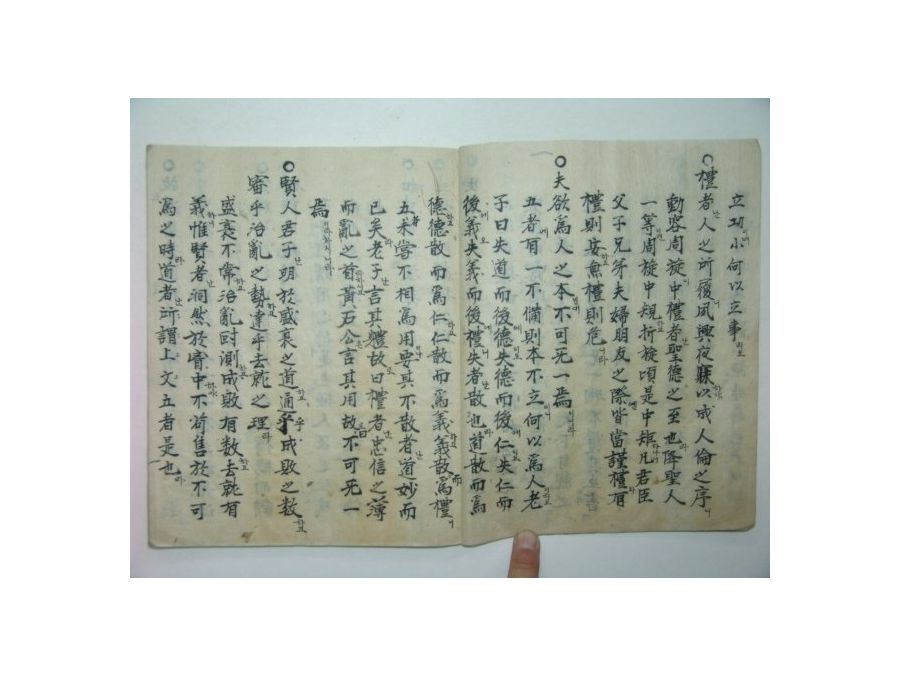 立功小何以立事
○禮者人之所履夙興夜寐以成人倫之序
動容周旋中禮者聖德之至也降聖人
一等周旋中規折旋頃是中矩凡君臣
父子兄弟夫婦朋友之際皆當謹禮有
禮則安無禮則危
○夫欲爲人之本不可死一焉
五者有一不備則本不立何以爲人老
子曰失道而後德失德而後仁失仁而
後義失義而後禮失者散也道散而爲
德德散而爲仁仁散而爲義義散而爲禮
五者未嘗不相爲用要其不散者道妙而
已矣老子言其體故曰禮者忠信之薄
而亂之首黃石公言其用故曰不可死一
焉
○賢人君子明於盛衰之道通乎成敗之数
審乎治亂之勢達乎去就之理
盛衰不常治亂回測成敗有数去就有
義惟賢者洞然於胷中不苟售於不可
爲之時道者所謂上文五者是也